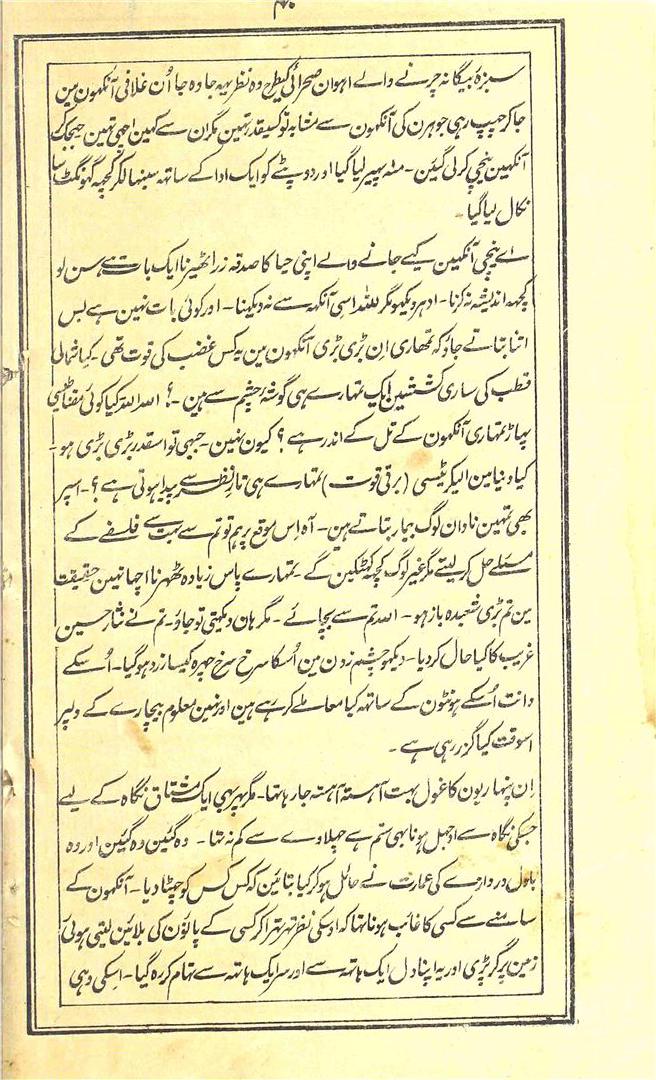 سبزۂ بیگانہ چرنے والے اہوان صحرائی کیطرح وہ نظر یہہ جا وہ جا اُن غلافی آنکھون مین
جا کر چھپ رہی جو ہرن کی آنکھون سے مشابہ تو کسیقدر تہین مگر ان سے کہین اچھی تہین جھجک کر
آنکہین نیچی کر لی گئین ۔ منہ پہیر لیا گیا اور دوپٹے کو ایک ادا کے ساتھ سنبہالکر کچہہ گہونگٹ سا
نکال لیا گیا
اے نیچی آنکہین کیے جانے والے اپنی حیا کا صدقہ زرا ٹھیرنا ایک بات ہے سن لو
کچہہ اندیشہ نہ کرنا ۔ ادہر دیکہو مگر للہ اسی آنکہہ سے نہ دیکہنا ۔ اور کوئی بات نہین ہے بس
اتنا بتاتے جاؤ کہ تمھاری ان بڑی بڑی آنکہون مین یہ کس غضب کی قوت تھی ۔ کیا شمالی
قطب کی ساری کششین ایک تمہارے ہی گوشۂ چشم سے ہین ۔؟ اللہ اللہ کیا کوئی مقناطیسی
پہاڑ تمہاری آنکہون کے تل کے اندر ہے ؟ کیون نہین ۔ جبہی تو اسقدر بڑی بڑی ہو ۔
کیا دنیا مین الیکٹریسٹی (برقی قوت) تمہارے ہی تارِ نظر سے پیدا ہوتی ہے ؟ ۔ اسپر
بھی تمہین نادان لوگ بیمار بتاتے ہین ۔ آہ اِس موقع پر ہم تو تم سے بہت سے فلسفے کے
مسئلے حل کر لیتے مگر غیر لوگ کچہہ کھٹکین گے ۔ تمہارے پاس زیادہ ٹھہرنا اچہا نہین حقیقت
مین تم بڑی شعبدہ باز ہو ۔ اللہ تم سے بچائے ۔ مگر ہان دیکہتی تو جاؤ ۔ تم نے نثار حسین
غریب کا کیا حال کر دیا ۔ دیکہو چشم زدن مین اُسکا سرخ سرخ چہرہ کیسا زرد ہو گیا ۔ اُسکے
دانت اُسکے ہونٹون کے ساتہہ کیا معاملے کر رہے ہین اور نہین معلوم بیچارے کے دلپر
اسوقت کیا گزر رہی ہے ۔
اِن پنہاریون کا غول بہت آہستہ آہستہ جا رہا تہا ۔ مگر پہر بہی ایک مشتاق نگاہ کے لیے
جسکی نگاہ سے اوجہل ہونا بہی ستم ہے چہلاوے سے کم نہ تہا ۔ وہ گئین وہ گئین اور وہ
باؤل دروازے کی عمارت نے حائل ہو کر کیا بتائین کہ کس کس کو چھپا دیا ۔ آنکہون کے
سامنے سے کسی کا غائب ہونا تہا کہ اوسکی نظر تہرتہرا کر کسی کے پاؤن کی بلائین لیتی ہوئی
زمین پر گر پڑی اور یہ اپنا دل ایک ہاتہ سے اور سر ایک ہاتہ سے تہام کر رہ گیا ۔ اسکی وہی